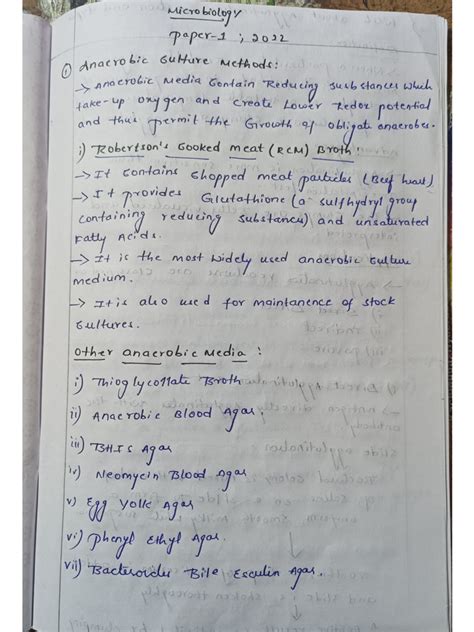 Microbiology
Paper-1 ; 2022
① Anaerobic Culture Methods:
→ Anaerobic Media Contain Reducing substances which
take-up oxygen and create Lower Redox potential
and thus permit the Growth of obligate anaerobes.
i) Robertson's Cooked Meat (RCM) Broth:
→ It contains chopped meat particles (Beef heart)
→ It provides Glutathione (a sulfhydryl group
containing reducing substance) and unsaturated
Fatty Acids.
→ It is the most widely used anaerobic culture
medium.
→ It is also used for maintanence of stock
cultures.
Other anaerobic Media :
i) Thioglycollate Broth
ii) Anaerobic Blood Agar;
iii) BHIS Agar
iv) Neomycin Blood Agar
v) Egg Yolk Agar
vi) Phenyl Ethyl Agar.
vii) Bacteroides Bile Esculin Agar.